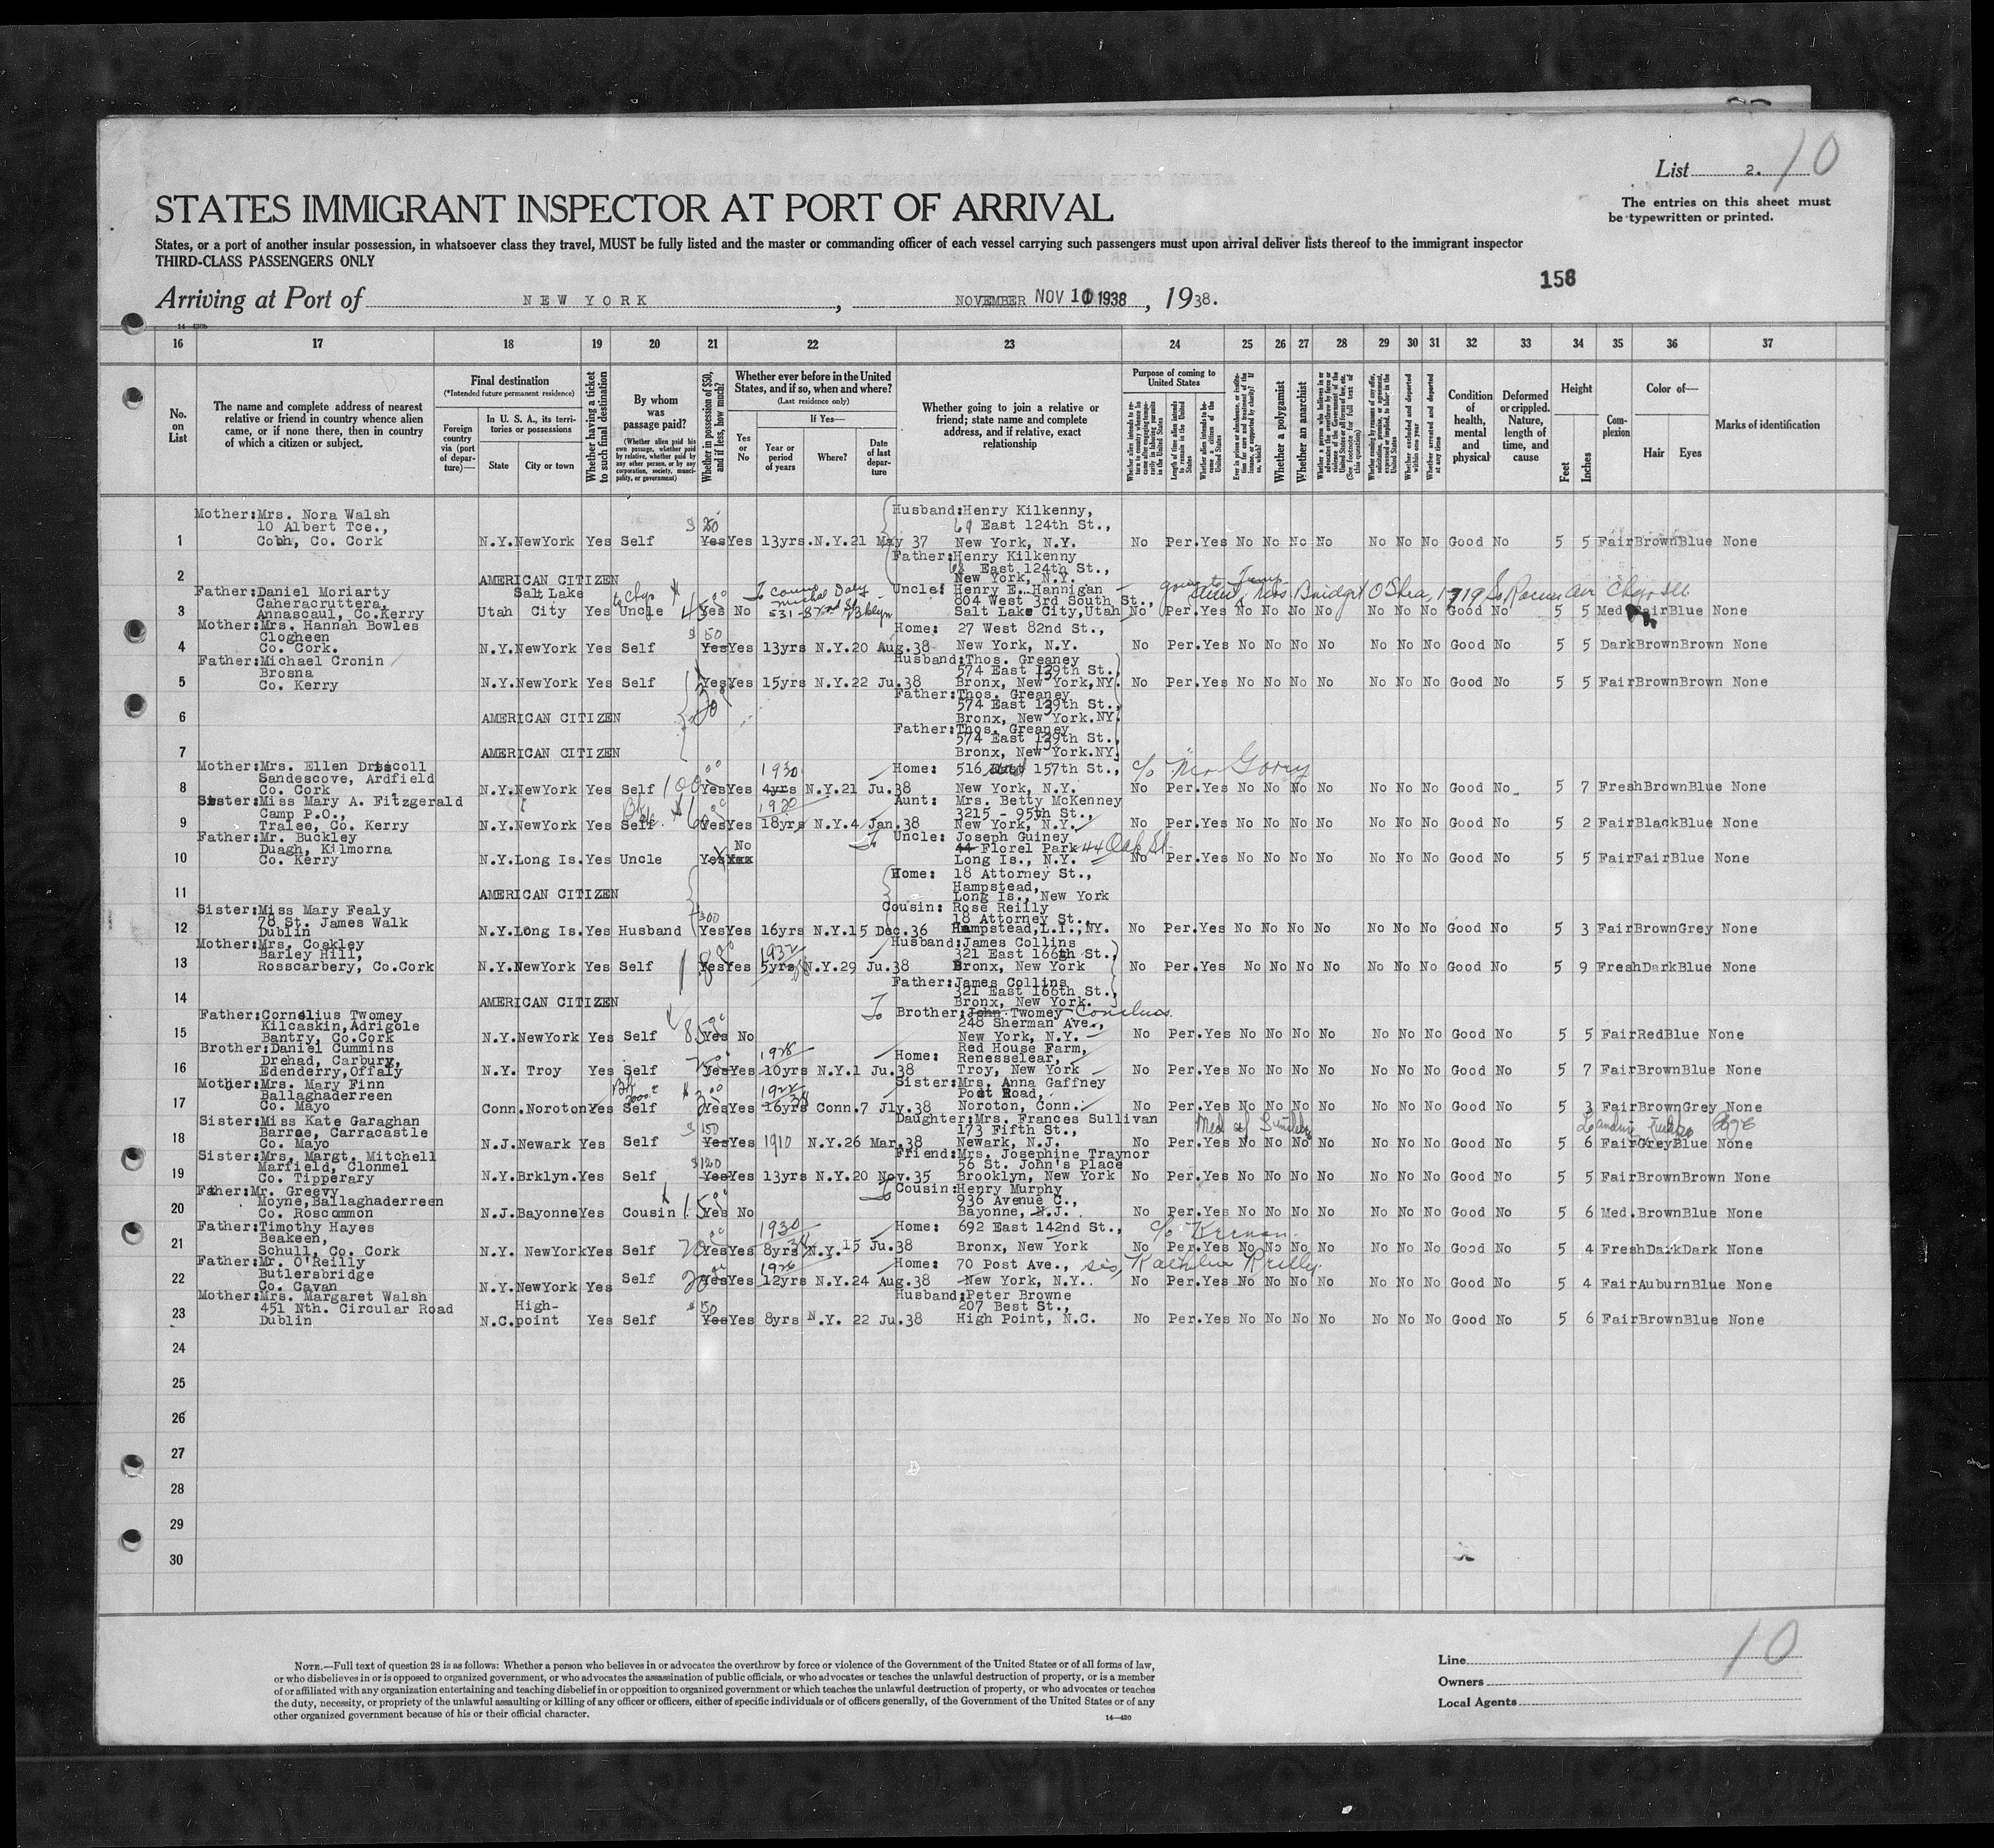 List 2. 10
The entries on this sheet must
be typewritten or printed.
STATES IMMIGRANT INSPECTOR AT PORT OF ARRIVAL
States, or a port of another insular possession, in whatsoever class they travel, MUST be fully listed and the master or commanding officer of each vessel carrying such passengers must upon arrival deliver lists thereof to the immigrant inspector
THIRD-CLASS PASSENGERS ONLY
158
Arriving at Port of NEW YORK, NOVEMBER NOV 10 1938, 1938.
16 17 18 19 20 21 22 23 24 25 26 27 28 29 30 31 32 33 34 35 36 37
No. on List
The name and complete address of nearest relative or friend in country whence alien came, or if none there, then in country of which a citizen or subject.
Final destination
(*Intended future permanent residence)
Foreign country via (port of departure)—
In U. S. A., its territories or possessions
State City or town
Whether having a ticket to such final destination
By whom was passage paid?
(Whether alien paid his own passage, whether paid by relative, whether paid by any other person, or by any corporation, society, municipality, or government)
Whether in possession of $50, and if less, how much?
Whether ever before in the United States, and if so, when and where?
(Last residence only)
Yes or No
If Yes—
Year or period of years
Where?
Date of last departure
Whether going to join a relative or friend; state name and complete address, and if relative, exact relationship
Purpose of coming to United States
Length of time alien intends to remain in the United States
Whether alien intends to become a citizen of the United States
Whether a polygamist
Whether an anarchist
Condition of health, mental and physical
Deformed or crippled. Nature, length of time, and cause
Height
Feet Inches
Complexion
Color of—
Hair Eyes
Marks of identification
Mother:Mrs. Nora Walsh
10 Albert Tce.,
Cobh, Co. Cork
1 N.Y. NewYork Yes Self $ 50 Yes Yes 13yrs. N.Y. 21 May 37
Husband:Henry Kilkenny,
East 124th St.,
New York, N.Y. No Per. Yes No No No No No No No Good No 5 5 Fair Brown Blue None
2 AMERICAN CITIZEN
Father:Henry Kilkenny
East 124th St.,
New York, N.Y.
Father:Daniel Moriarty
Caheracruttera,
Annascaul, Co.Kerry
3 Utah Salt Lake City Yes Uncle 45 Yes No
531-87
Uncle: Henry E. Hannigan
804 West 3rd South St.,
Salt Lake City, Utah No Per. Yes No No No No No No No Good No 5 5 Med. Fair Blue None
Aunt Mrs. Bridget O'Shea, 1719 S. Racine Ave Chgo Ill
Mother:Mrs. Hannah Bowles
Clogheen
Co. Cork.
4 N.Y. NewYork Yes Self $ 50 Yes Yes 13yrs N.Y. 20 Aug.38
Home: 27 West 82nd St.,
New York, N.Y. No Per. Yes No No No No No No No Good No 5 5 Dark Brown Brown None
Father:Michael Cronin
Brosna
Co. Kerry
5 N.Y. NewYork Yes Self Yes Yes 15yrs N.Y. 22 Ju.38
Husband:Thos. Greaney
574 East 139th St.,
Bronx, New York,NY. No Per. Yes No No No No No No No Good No 5 5 Fair Brown Brown None
6 AMERICAN CITIZEN
Father:Thos. Greaney
574 East 139th St.,
Bronx, New York.NY.
7 AMERICAN CITIZEN
Father:Thos. Greaney
574 East 139th St.,
Bronx, New York.NY.
Mother:Mrs. Ellen Driscoll
Sandescove, Ardfield
Co. Cork
8 N.Y. NewYork Yes Self 100 Yes Yes 1930 4yrs N.Y. 21 Ju.38
Home: 516 157th St., c/o Mrs Gorry
New York, N.Y. No Per. Yes No No No No No No No Good No. 5 7 Fresh Brown Blue None
Sister:Miss Mary A. Fitzgerald
Camp P.O.,
Tralee, Co. Kerry
9 N.Y. NewYork Yes Self Yes Yes 1920 18yrs N.Y. 4 Jan.38
Aunt: Mrs. Betty McKenney
3215 - 95th St.,
New York, N.Y. No Per. Yes No No No No No No No Good No 5 2 Fair Black Blue None
Father:Mr. Buckley
Duagh, Kilmorna
Co. Kerry
10 N.Y. Long Is. Yes Uncle Yes No
Uncle: Joseph Guiney
44 Florel Park 44 Oak St
Long Is., N.Y. No Per. Yes No No No No No No No Good No 5 5 Fair Fair Blue None
11 AMERICAN CITIZEN
Home: 18 Attorney St.,
Hampstead,
Long Is., New York
Sister:Miss Mary Fealy
78 St. James Walk
Dublin
12 N.Y. Long Is. Yes Husband 300 Yes Yes 16yrs N.Y. 15 Dec.36
Cousin: Rose Reilly
18 Attorney St.,
Hampstead,L.I.,NY. No Per. Yes No No No No No No No Good No 5 3 Fair Brown Grey None
Mother:Mrs. Coakley
Barley Hill,
Rosscarbery, Co.Cork
13 N.Y. NewYork Yes Self Yes Yes 1932 5yrs N.Y. 29 Ju.38
Husband:James Collins
321 East 166th St.,
Bronx, New York No Per. Yes No No No No No No No Good No 5 9 Fresh Dark Blue None
14 AMERICAN CITIZEN
Father:James Collins
321 East 166th St.,
Bronx, New York.
Father:Cornelius Twomey
Kilcaskin,Adrigole
Bantry, Co.Cork
15 N.Y. NewYork Yes Self 85 Yes No
To Brother:John Twomey Cornelius
248 Sherman Ave.,
New York, N.Y. No Per. Yes No No No No No No No Good No 5 5 Fair Red Blue None
Brother:Daniel Cummins
Drehad, Carbury,
Edenderry,Offaly
16 N.Y. Troy Yes Self Yes Yes 1928 10yrs N.Y. 1 Ju.38
Home: Red House Farm,
Renesselear,
Troy, New York No Per. Yes No No No No No No No Good No 5 7 Fair Brown Blue None
Mother:Mrs. Mary Finn
Ballaghaderreen
Co. Mayo
17 Conn. Noroton Yes Self Yes Yes 1922 16yrs Conn. 7 Jly.38
Sister:Mrs. Anna Gaffney
Post Road,
Noroton, Conn. No Per. Yes No No No No No No No Good No 5 3 Fair Brown Grey None
Sister:Miss Kate Garaghan
Barroe, Carracastle
Co. Mayo
18 N.J. Newark Yes Self $ 150 Yes Yes 1910 N.Y. 26 Mar.38
Daughter:Mrs. Frances Sullivan
173 Fifth St.,
Newark, N.J. No Per. Yes No No No No No No No Good No 5 6 Fair Grey Blue None
Sister:Mrs. Margt. Mitchell
Marfield, Clonmel
Co. Tipperary
19 N.Y. Brklyn. Yes Self $120 Yes Yes 13yrs N.Y. 20 Nov.35
Friend:Mrs. Josephine Traynor
56 St. John's Place
Brooklyn, New York No Per. Yes No No No No No No No Good No 5 5 Fair Brown Brown None
Father:Mr. Greevy
Moyne,Ballaghaderreen
Co. Roscommon
20 N.J. Bayonne Yes Cousin 15 Yes No
To Cousin:Henry Murphy
936 Avenue C.,
Bayonne, N.J. No Per. Yes No No No No No No No Good No 5 6 Med. Brown Blue None
Father:Timothy Hayes
Beakeen,
Schull, Co. Cork
21 N.Y. NewYork Yes Self 20 Yes Yes 1930 8yrs N.Y. 15 Ju.38
Home: 692 East 142nd St., c/o Kernan
Bronx, New York No Per. Yes No No No No No No No Good No 5 4 Fresh Dark Dark None
Father:Mr. O'Reilly
Butlersbridge
Co. Cavan
22 N.Y. NewYork Yes Self 20 Yes Yes 1926 12yrs N.Y. 24 Aug.38
Home: 70 Post Ave., sis, Kathleen Reilly
New York, N.Y. No Per. Yes No No No No No No No Good No 5 4 Fair Auburn Blue None
Mother:Mrs. Margaret Walsh
451 Nth. Circular Road
Dublin
23 N.C. High-point Yes Self $ 50 Yes Yes 8yrs N.Y. 22 Ju.38
Husband:Peter Browne
207 Best St.,
High Point, N.C. No Per. Yes No No No No No No No Good No 5 6 Fair Brown Blue None
24
25
26
27
28
29
30
10
NOTE.—Full text of question 28 is as follows: Whether a person who believes in or advocates the overthrow by force or violence of the Government of the United States or of all forms of law,
or who disbelieves in or is opposed to organized government, or who advocates the assassination of public officials, or who advocates or teaches the unlawful destruction of property, or is a member
of or affiliated with any organization entertaining and teaching disbelief in or opposition to organized government or which teaches the unlawful destruction of property, or who advocates or teaches
the duty, necessity, or propriety of the unlawful assaulting or killing of any officer or officers, either of specific individuals or of officers generally, of the Government of the United States or of any
other organized government because of his or their official character.
14—430
Line
Owners
Local Agents